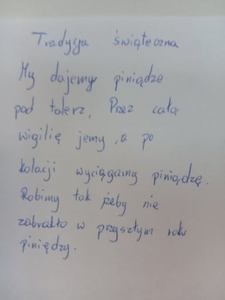 Tradycja świąteczna
My dajemy piniądze
pod talerz, Przez całą
wigilię jemy, a po
kolacji wyciągamy piniądzę.
Robimy tak żeby nie
zabrakło w przysztym roku
piniędzy.